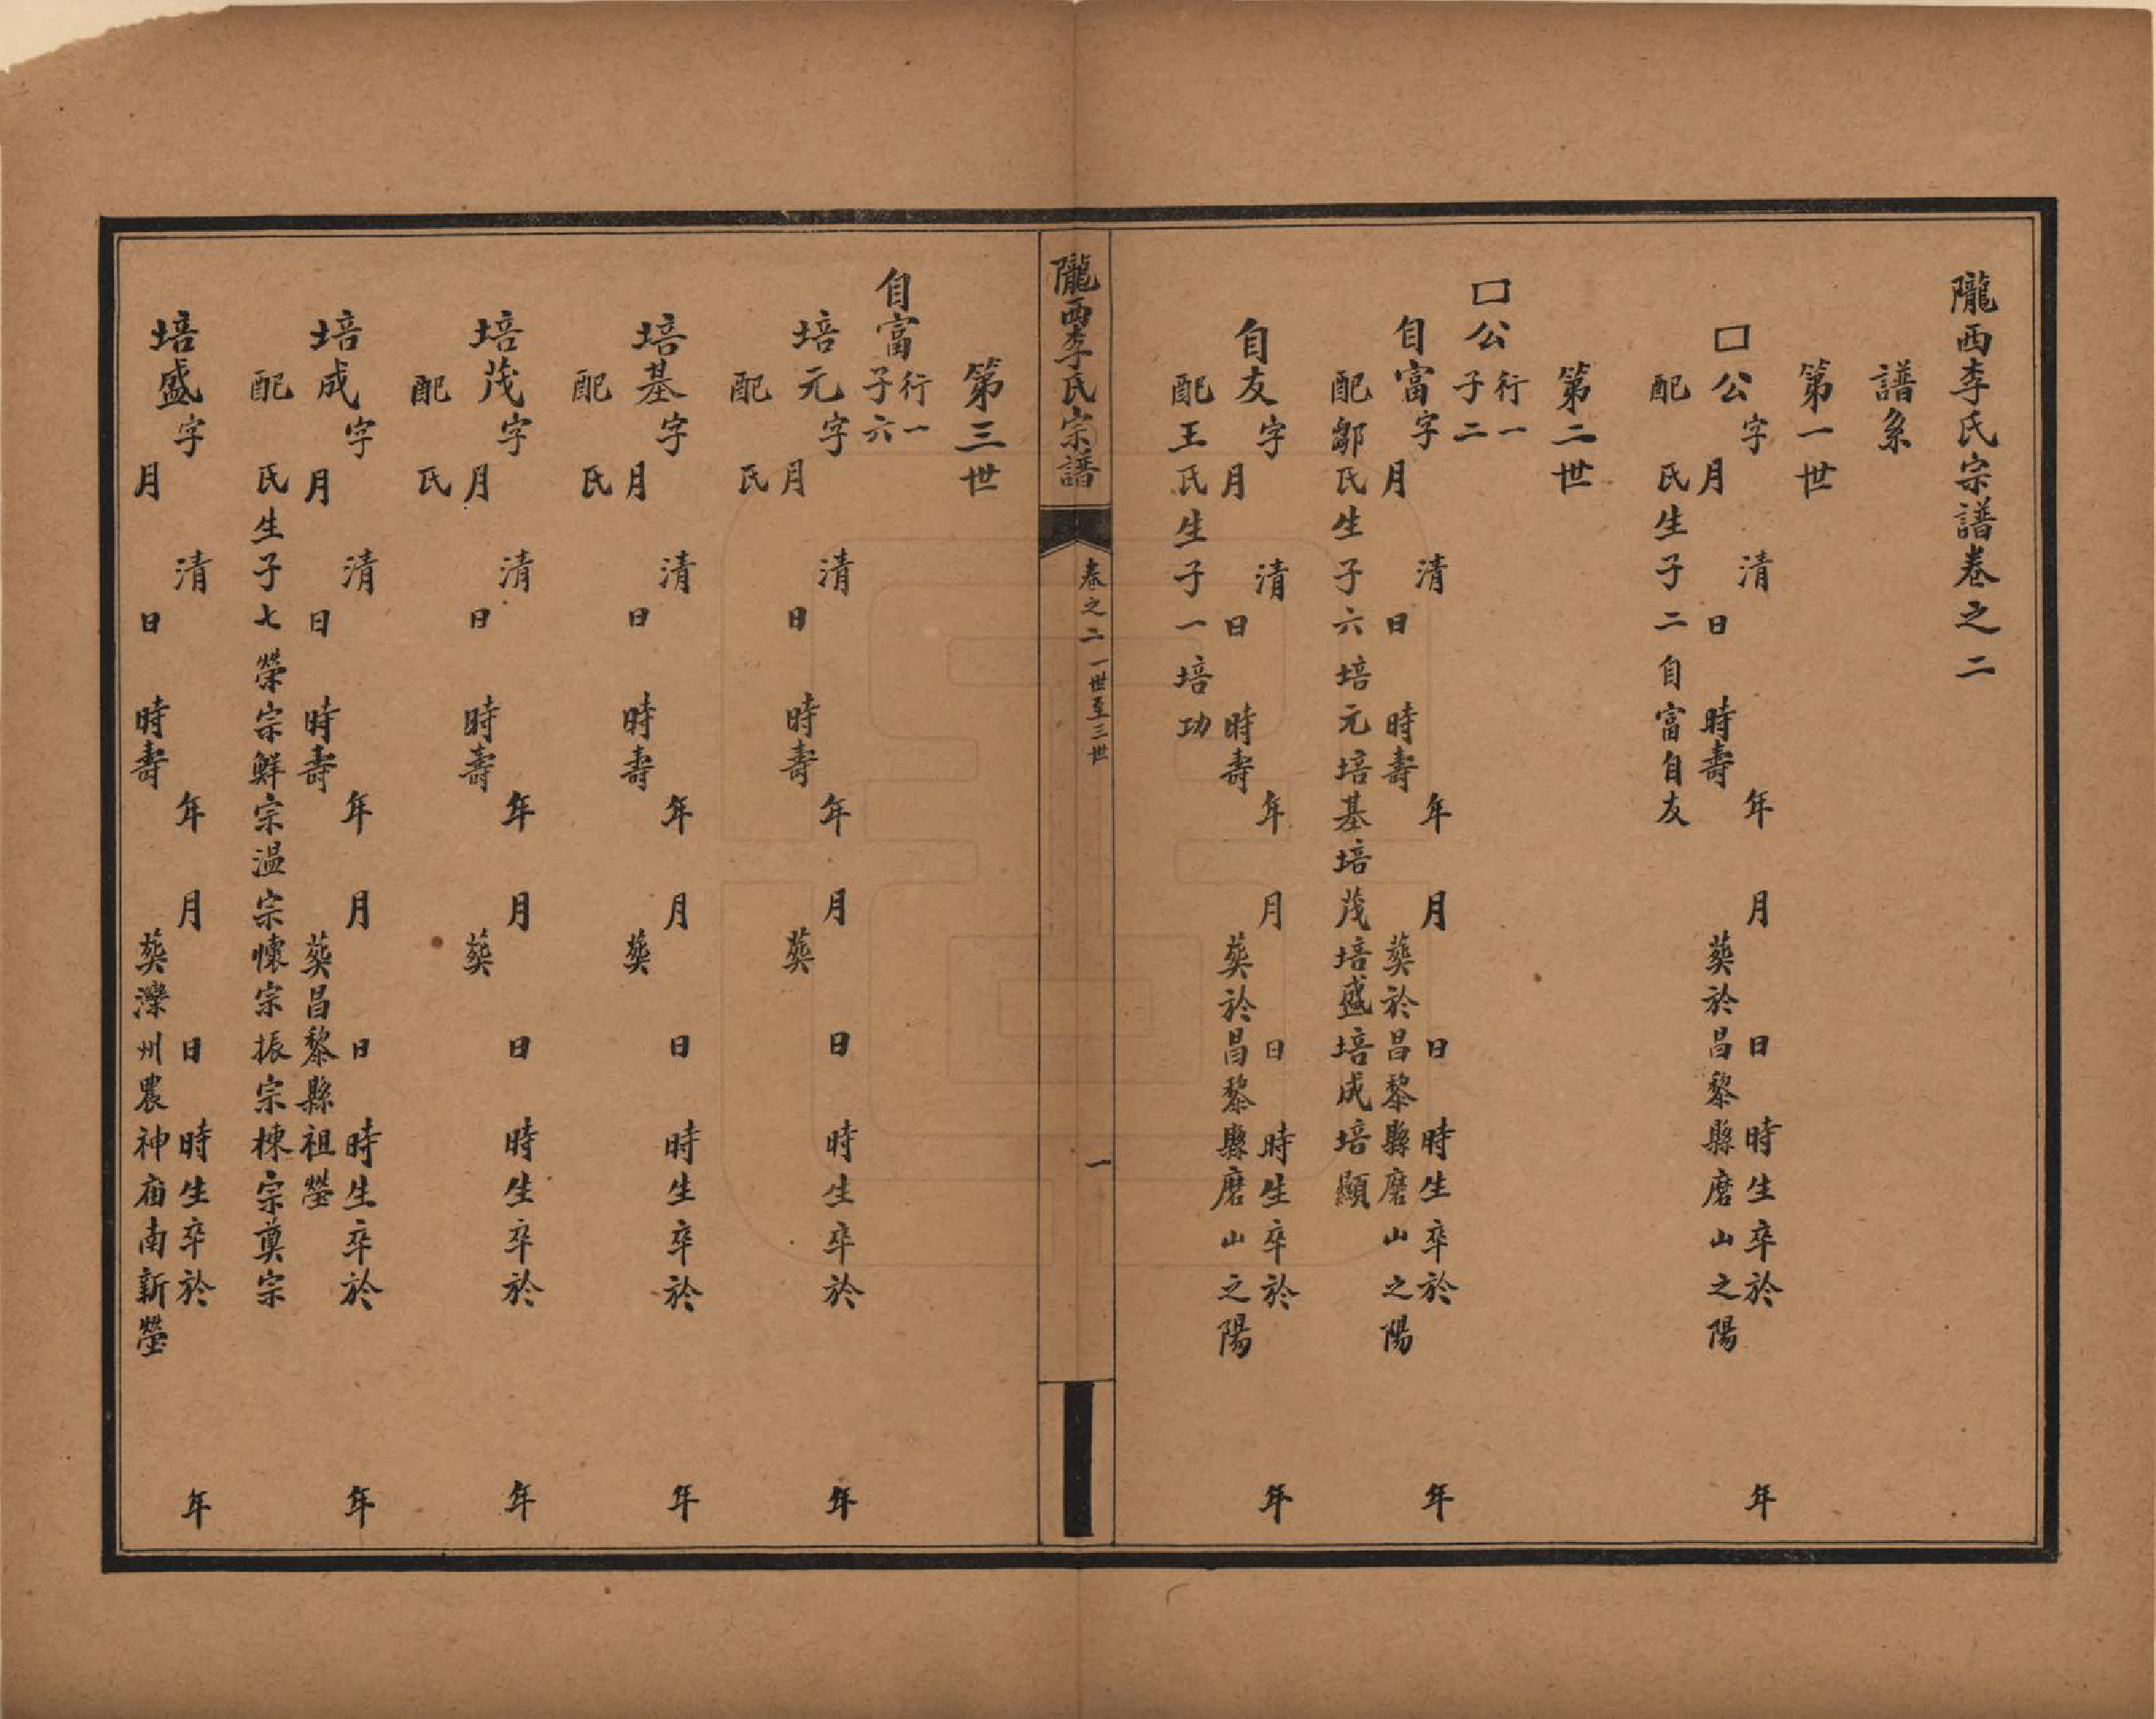 隴西李氏宗譜卷之二
譜系
第一世
口公字 清 年 月 日 時生卒於 年
月 日 時壽 葬於昌黎縣磨山之陽
配 氏生子二自富自友
第二世
口公行一
子二
自富字 清 年 月 日 時生卒於 年
月 日 時壽 葬於昌黎縣磨山之陽
配鄒氏生子六培元培基培茂培盛培成培顯
自友字 清 年 月 日 時生卒於 年
月 日 時壽 葬於昌黎縣磨山之陽
配王氏生子一培功
隴西李氏宗譜 卷之二 一世至三世 一
第三世
自富行一
子六
培元字 清 年 月 日 時生卒於 年
月 日 時壽 葬
配 氏
培基字 清 年 月 日 時生卒於 年
月 日 時壽 葬
配 氏
培茂字 清 年 月 日 時生卒於 年
月 日 時壽 葬
配 氏
培成字 清 年 月 日 時生卒於 年
月 日 時壽 葬昌黎縣祖塋
配 氏生子七榮宗鮮宗温宗懷宗振宗棟宗奠宗
培盛字 清 年 月 日 時生卒於 年
月 日 時壽 葬灤州農神庙南新塋